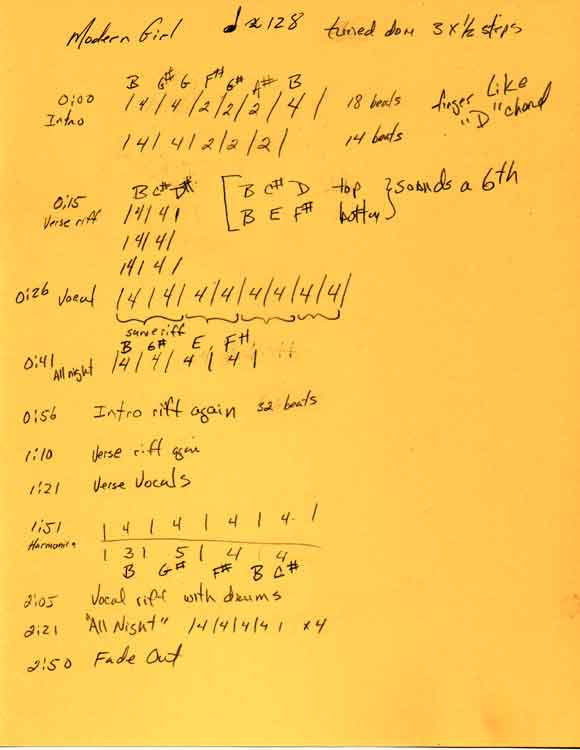 Modern Girl ♩≈128 tuned down 3 x ½ steps
B G# G F# G# A# B
0:00 /4/4/2/2/2/4/ 18 beats finger Like
Intro "D" chord
/4/4/2/2/2/ 14 beats
0:15 B C# D# [B C# D top } sounds a 6th
Verse riff /4/4/ [B E F# bottom
/4/4/
/4/4/
0:26 Vocal /4/4/4/4/4/4/4/4/
same riff
B G# E F#
0:41 All night /4/4/4/4/
0:56 Intro riff again 32 beats
1:10 Verse riff again
1:21 Verse Vocals
1:51 | 4 | 4 | 4 | 4 |
Harmonica | 3 | 5 | 4 | 4
B G# F# B C#
2:05 Vocal riff with drums
2:21 "All Night" /4/4/4/4/ x4
2:50 Fade Out